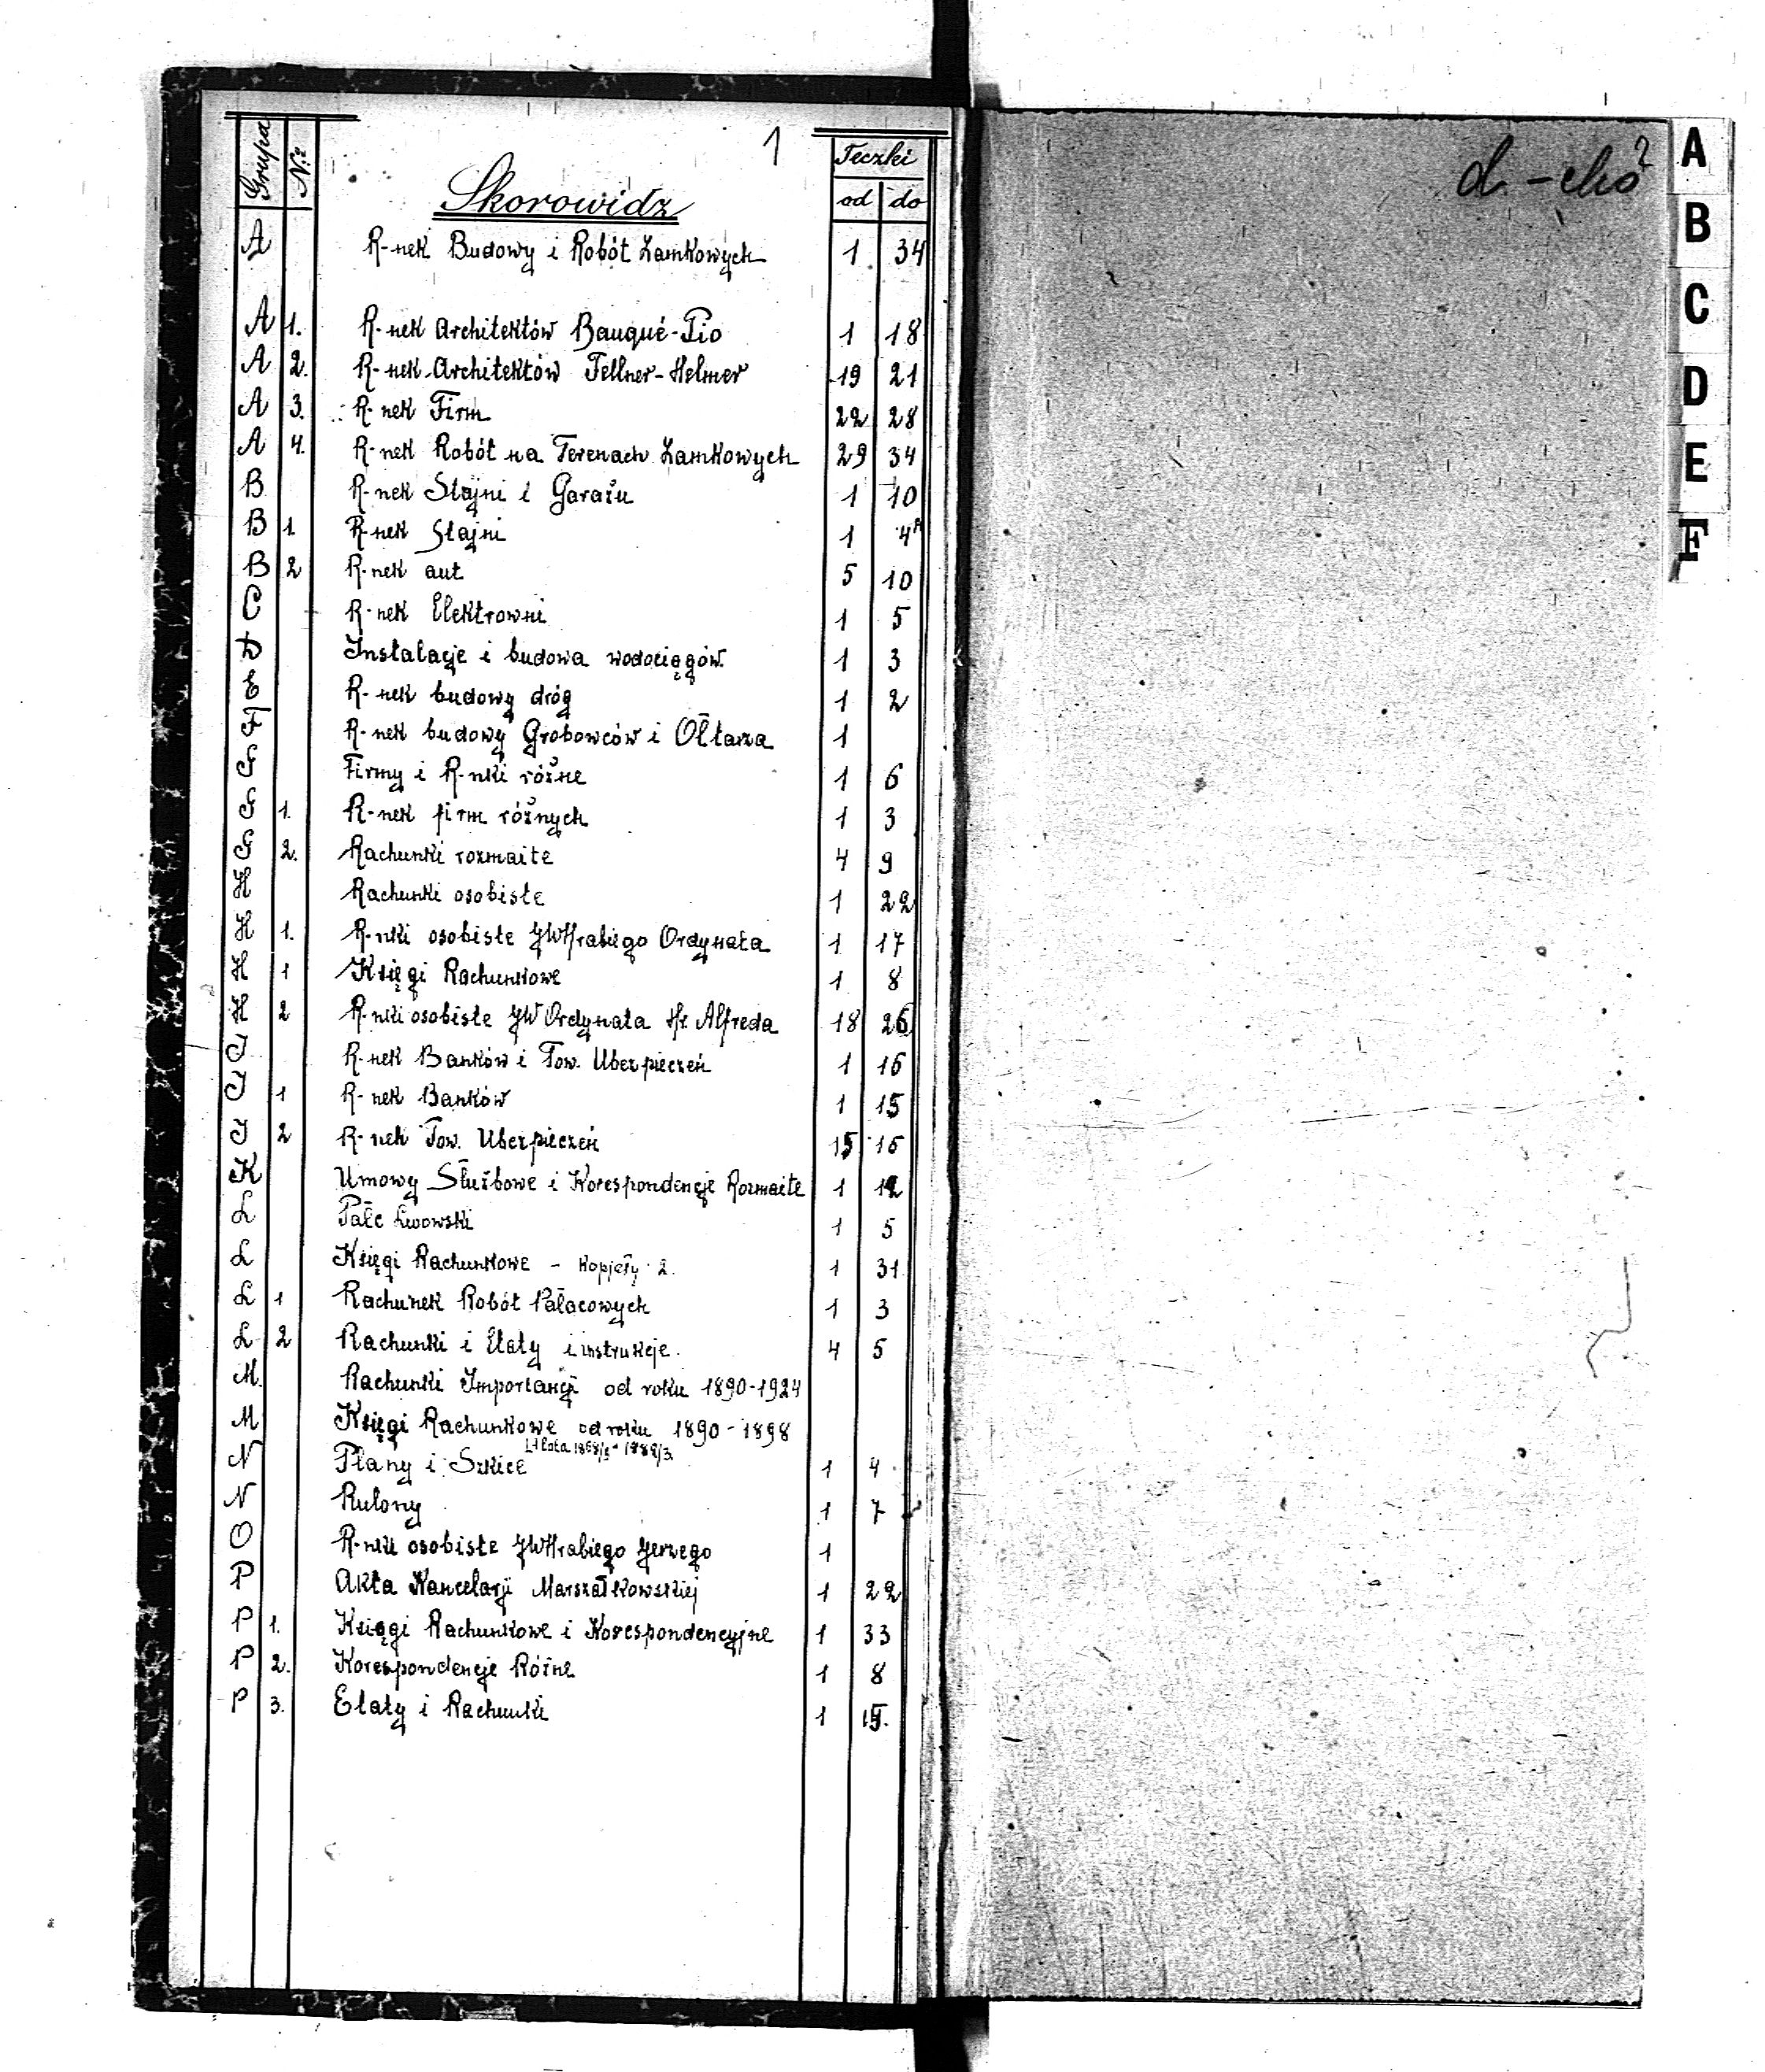 1
Grupa Nº Skorowidz Teczki
od do
A R-nek Budowy i Robót Zamkowych 1 34
A 1. R-nek Architektów Bauqué-Pio 1 18
A 2. R-nek Architektów Fellner-Helmer 19 21
A 3. R-nek Firm 22 28
A 4. R-nek Robót na Terenach Zamkowych 29 34
B R-nek Stajni i Garażu 1 10
B 1. R-nek Stajni 1 4
B 2 R-nek aut 5 10
C R-nek Elektrowni 1 5
D Instalacje i budowa wodociągów 1 3
E R-nek budowy dróg 1 2
F R-nek budowy Grobowców i Ołtarza 1
G Firmy i R-nki różne 1 6
G 1. R-nek firm różnych 1 3
G 2. Rachunki rozmaite 4 9
H Rachunki osobiste 1 22
H 1. R-nki osobiste JWHrabiego Ordynata 1 17
H 1 Księgi Rachunkowe 1 8
H 2 R-nki osobiste JW Ordynata Hr. Alfreda 18 26
J R-nek Banków i Tow. Ubezpieczeń 1 16
J 1 R-nek Banków 1 15
J 2 R-nek Tow. Ubezpieczeń 15 16
K Umowy Służbowe i Korespondencje Rozmaite 1 12
L Pałc Lwowski 1 5
L Księgi Rachunkowe - Kopjały 2. 1 31
L 1 Rachunek Robót Pałacowych 1 3
L 2 Rachunki i Etaty i instrukcje. 4 5
M. Rachunki Importancji od roku 1890-1924
M Księgi Rachunkowe od roku 1890-1898
N Plany i Szkice 1 4
N Rulony 1 7
O R-nki osobiste JWHrabiego Jerzego 1
P Akta Kancelarji Marszałkowskiej 1 22
P 1. Księgi Rachunkowe i Korespondencyjne 1 33
P 2. Korespondencje Różne 1 8
P 3. Etaty i Rachunki 1 15.
A
B
C
D
E
F